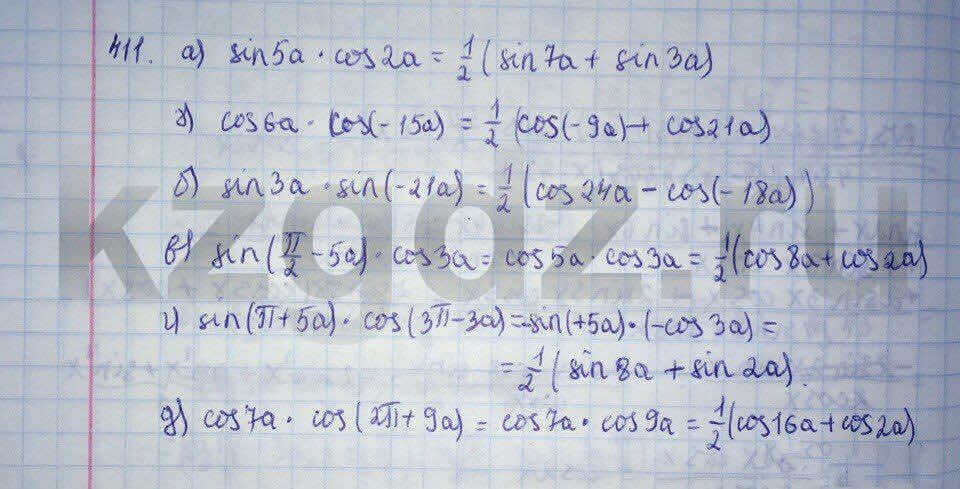 411. а) sin5a · cos2a = 1/2 (sin7a + sin3a)
г) cos6a · cos(-15a) = 1/2 (cos(-9a) + cos21a)
б) sin3a · sin(-21a) = 1/2 (cos24a - cos(-18a))
в) sin(π/2 - 5a) · cos3a = cos5a · cos3a = 1/2 (cos8a + cos2a)
г) sin(π + 5a) · cos(3π - 3a) = -sin(+5a) · (-cos3a) =
= 1/2 (sin8a + sin2a).
д) cos7a · cos(2π + 9a) = cos7a · cos9a = 1/2 (cos16a + cos2a)
kzgdz.ru